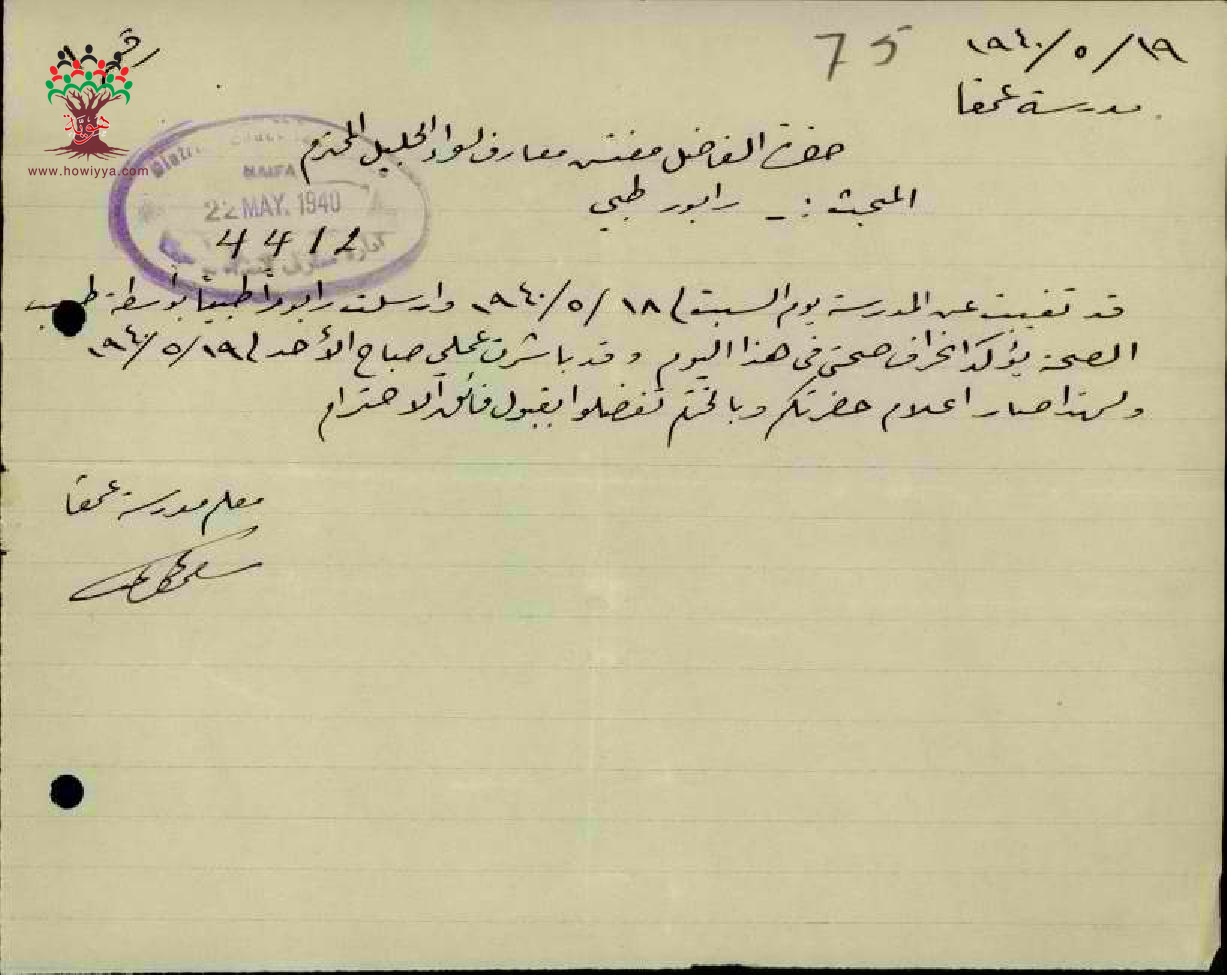 ١٩/٥/١٩٤٠
75
مدرسة عمقا
حضرة الفاضل مفتش معارف لواء الجليل المحترم
المبحث :- رابور طبي
قد تغيبت عن المدرسة يوم السبت في ١٨/٥/١٩٤٠ وارسلت رابوراً طبياً بواسطة طبيب
الصحة يؤكد انحراف صحتي في هذا اليوم وقد باشرت عملي صباح الأحد في ١٩/٥/١٩٤٠
ولهذا صار اعلام حضرتكم وبالختم تفضلوا بقبول فائق الاحترام
معلم مدرسة عمقا
HAIFA
22 MAY. 1940
4412
هوية
www.howiyya.com